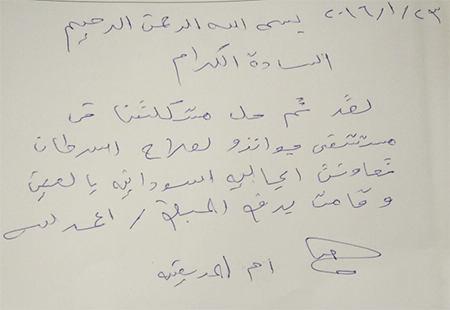 ٢٠١٦/١/٢٣
بسم الله الرحمن الرحيم
السادة الكرام
لقد تم حل مشكلتنا في
مستشفى جوانزو لعلاج السرطان
تعاونت الجاليه السودانيه بالصين
وقامت بدفع المبلغ / الحمد لله
أم المريضه